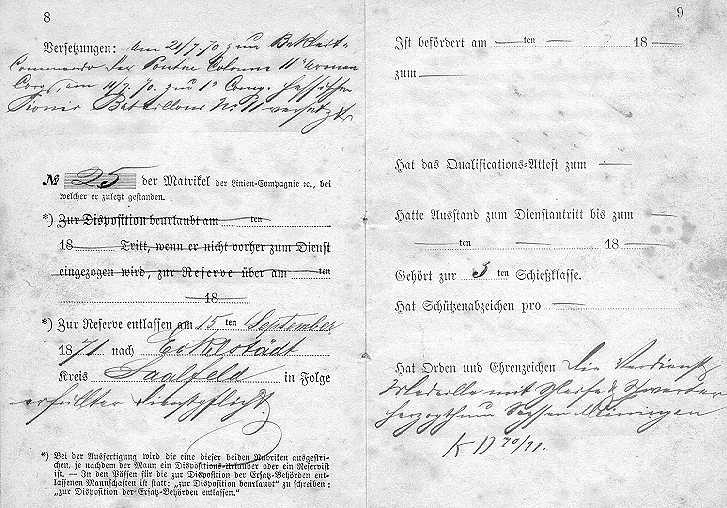 8
Versetzungen: Am 21/7.70 zum Begleit-
Commando der Ponton Colonne 11n Armee
Corps, am 4/9.70. zur 1n Comp. Hessischen
Pionier Bataillons No. 11 versetzt
№ 25 der Matrikel der Linien-Compagnie ꝛc., bei
welcher er zuletzt gestanden.
*) Zur Disposition beurlaubt am — ten
18 — Tritt, wenn er nicht vorher zum Dienst
eingezogen wird, zur Reserve über am — ten
— 18 —
*) Zur Reserve entlassen am 15 ten September
1871 nach
Kreis Saalfeld in Folge
erfüllter Dienstpflicht
*) Bei der Ausfertigung wird die eine dieser beiden Rubriken ausgestri-
chen, je nachdem der Mann ein Dispositions-Urlauber oder ein Reservist
ist. — In den Pässen für die zur Disposition der Ersatz-Behörden ent-
lassenen Mannschaften ist statt: „zur Disposition beurlaubt“ zu schreiben:
„zur Disposition der Ersatz-Behörden entlassen.“
9
Ist befördert am — ten — 18 —
zum —
Hat das Qualifications-Attest zum —
Hatte Ausstand zum Dienstantritt bis zum —
— ten — 18 —
Gehört zur 3 ten Schießklasse.
Hat Schützenabzeichen pro —
Hat Orden und Ehrenzeichen Die Verdienst
Medaille mit Schleife & Schwerter
Herzogthum Sachsen Meiningen
K D 70/71.